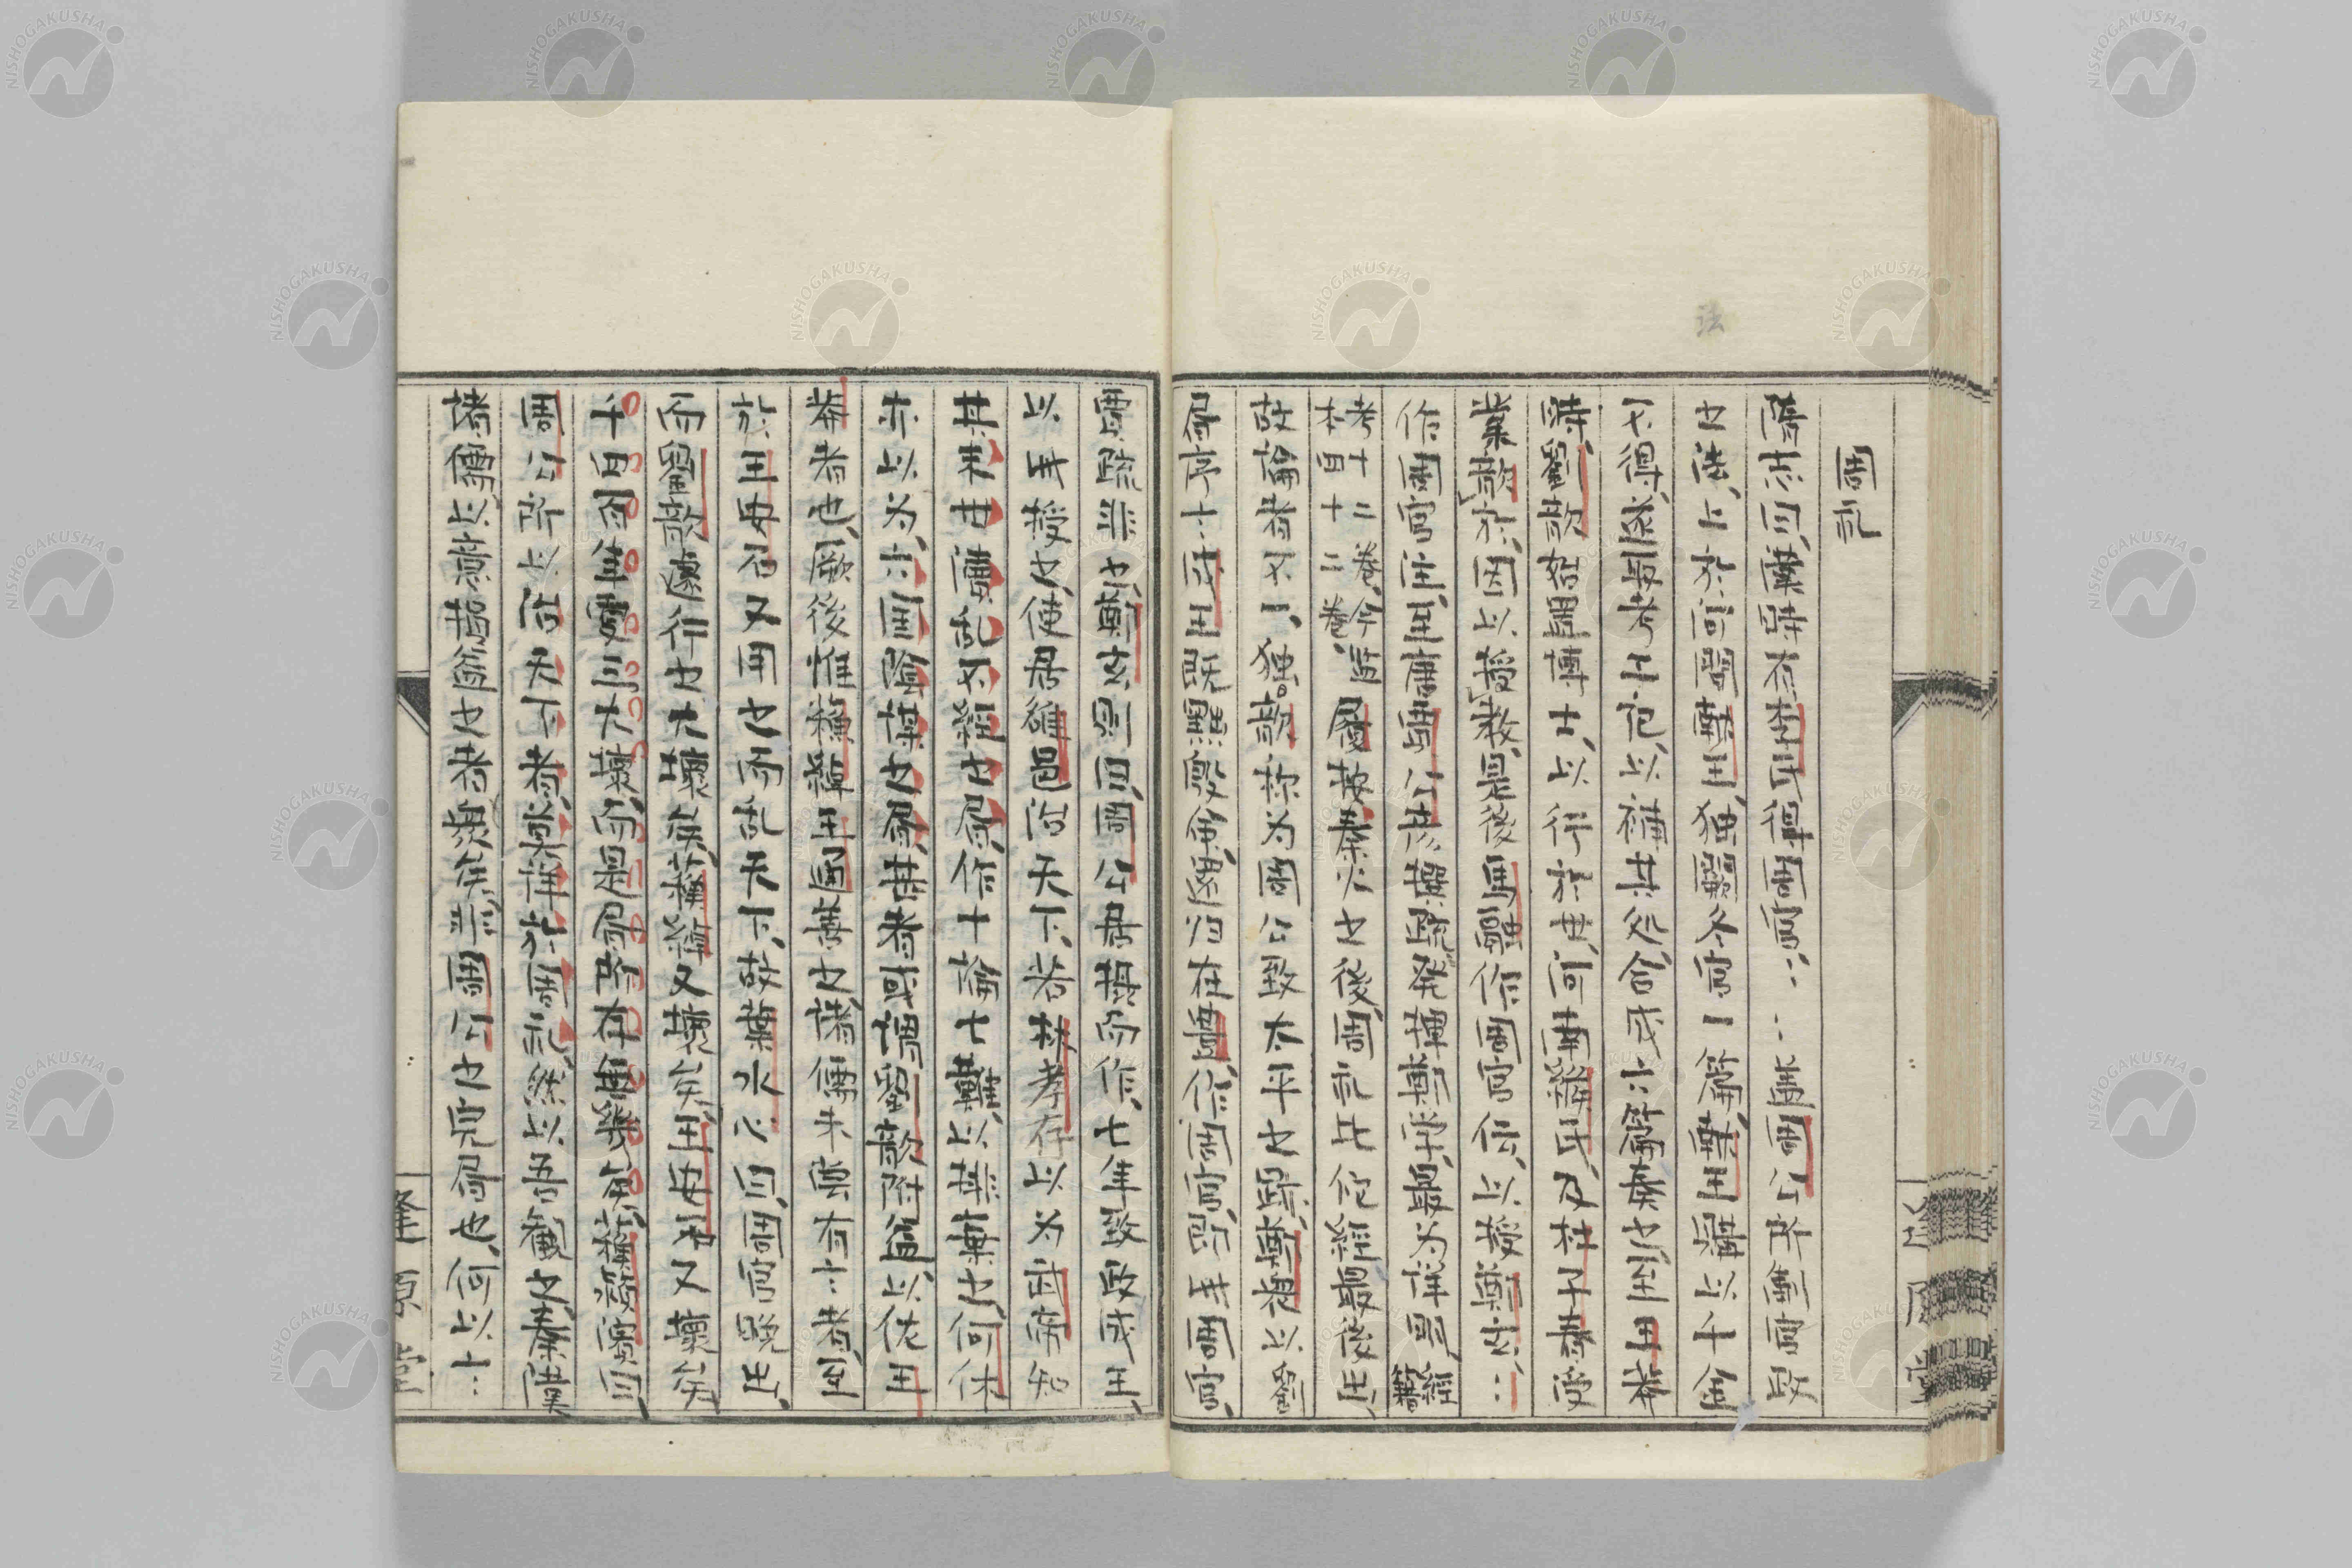 周礼
隋志曰、漢時有李氏得周官、、、、蓋周公所制官政
之法、上於河間献王、独闕冬官一篇、献王購以千金
不得、遂取考工記、以補其処、合成六篇奏之、至王莽
時、劉歆始置博士、以行於世、河南緱氏及杜子春受
業歆於、因以授教、是後馬融作周官伝、以授鄭玄、、
作周官注、唐賈公彦撰疏、発揮鄭学、最為詳明、経籍
考十二巻、今蓋本四十二巻、履按秦火之後、周礼比他経最後出、
故論者不一、独歆称为周公致太平之迹、鄭樵以劉
序六、成王既黜殷命、還归在豊、作周官、則成周官、
賈疏非之、鄭玄則曰、周公居摂而作、七年致政成王、
以此授之、使居雒邑治天下、若林孝存以为武帝知
其末世瀆乱不経之書、作十論七難、以排棄之、何休
亦以为、六国陰謀之書、甚者或謂劉歆附益、以佐王
莽者也、厥後惟蘇綽王通善之、諸儒未嘗有六者、至
於王安石又用之而乱天下、故葉水心曰、周官晚出、
而劉歆遽行之大壊矣、蘇綽又壊矣、王安石又壊矣
千四百年更三大壊、而是書所有無幾矣、蘇潁濱曰、
周公所以治天下者、莫詳於周礼、然以吾観之、秦漢
諸儒以意損益之者衆矣、非周公之完書也、何以、、
法
松原堂